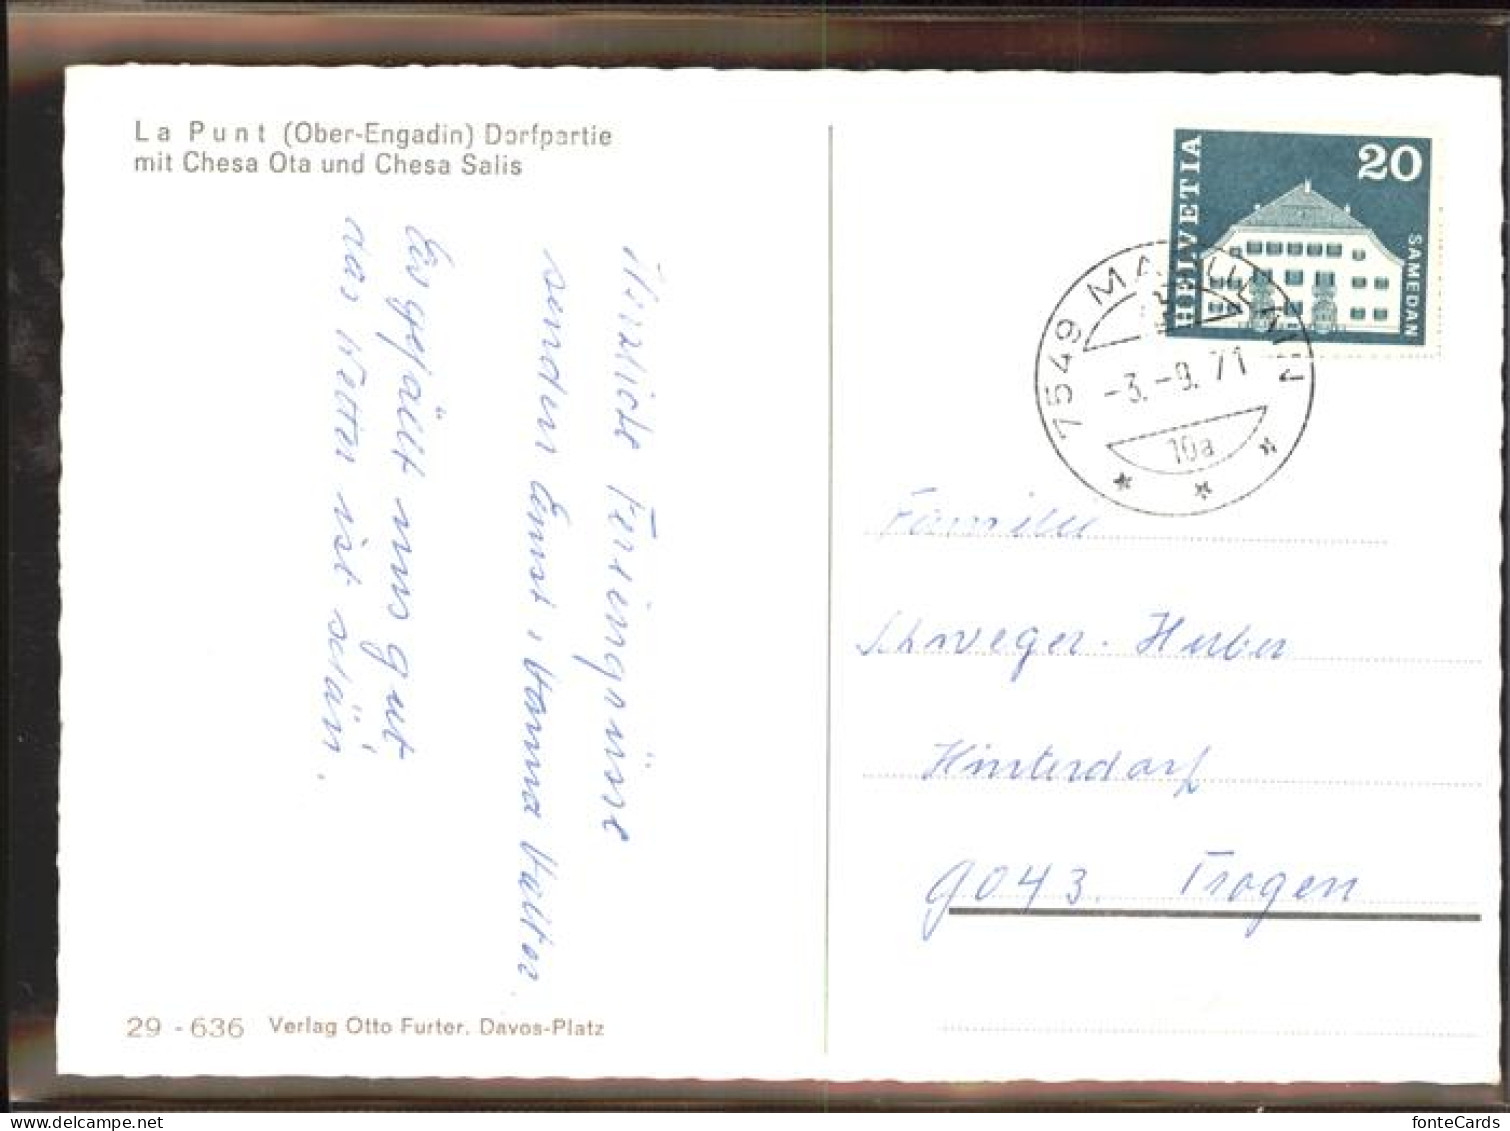 La Punt (Ober-Engadin) Dorfpartie
mit Chesa Ota und Chesa Salis
Herzliche Feriengrüsse
senden Ernst + Hanna Walser.
Es gefällt uns gut
das Wetter ist schön.
29 - 636 Verlag Otto Furter. Davos-Platz
HELVETIA
20
SAMEDAN
7549
-3.-9.71
10a
Familie
Schweger-Huber
Hinterdorf
9043. Trogen
fonteCards